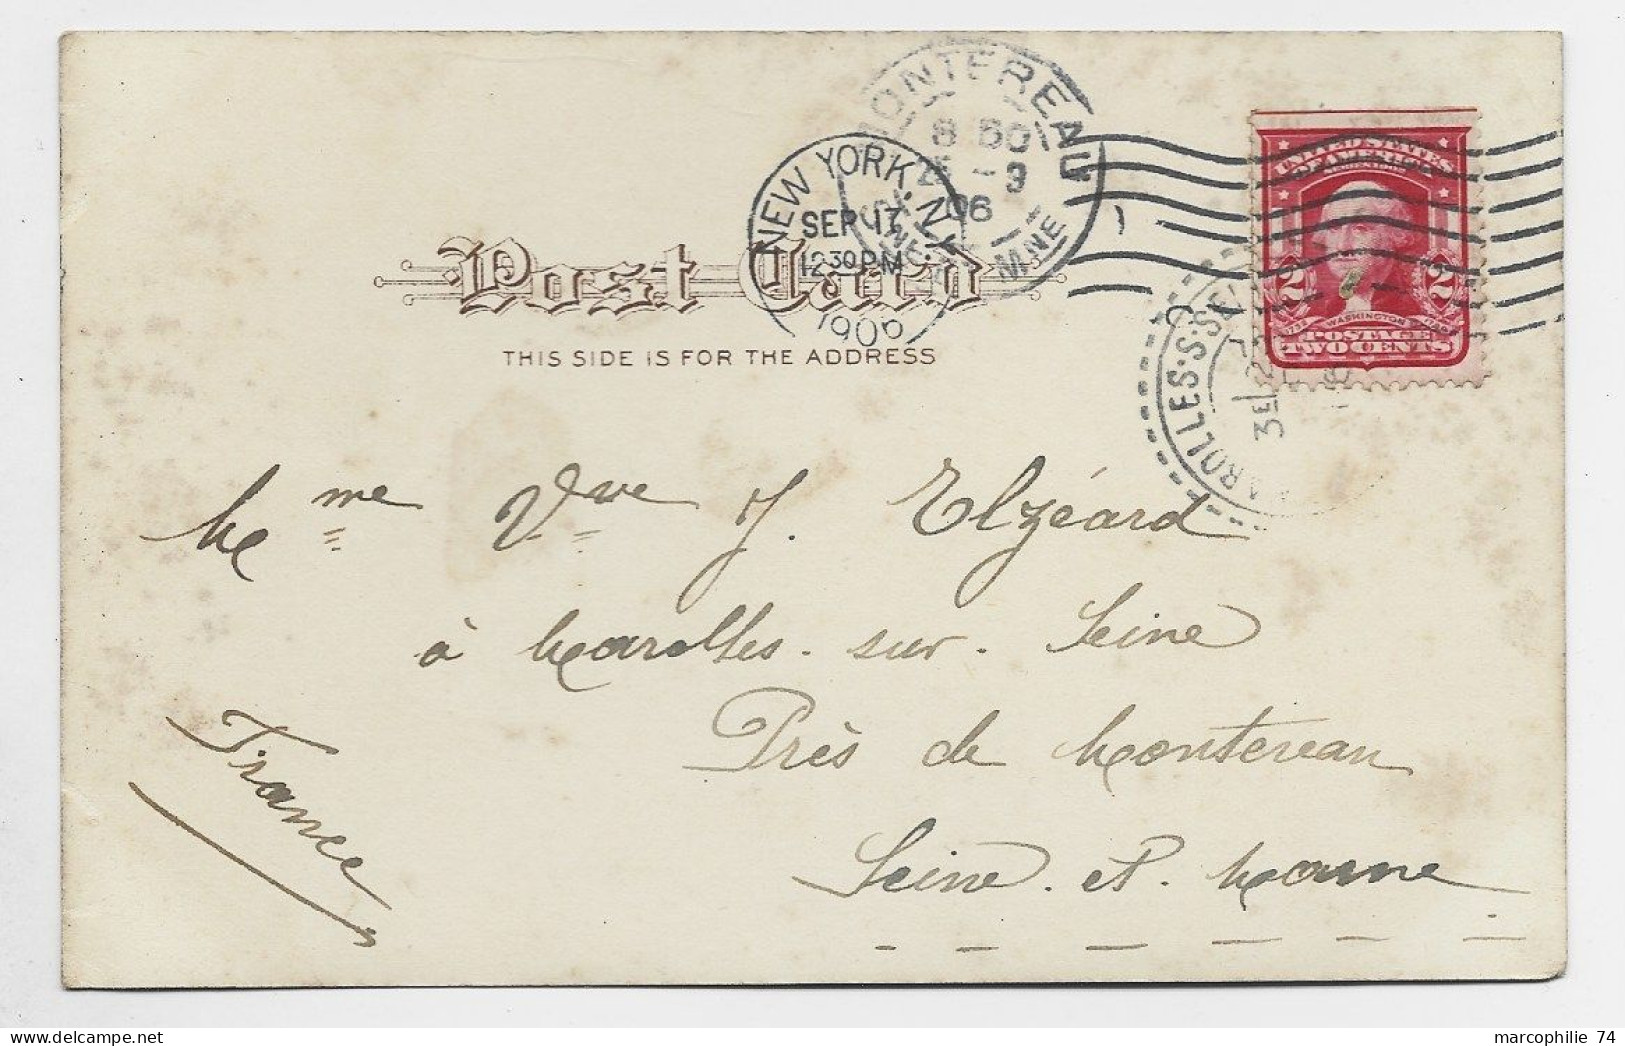 MONTEREAU
8 50
25 -9
06
SEINE ET MNE
NEW YORK, N.Y.
SEP 17
12 30 PM
1906
UNITED STATES OF AMERICA
2 2
1732 WASHINGTON 1799
POSTAGE
TWO CENTS
MAROLLES-S-SEINE
Post Card
THIS SIDE IS FOR THE ADDRESS
Mme Vve J. Elzéard
à Marolles. sur. Seine
Près de Montereau
Seine. et. Marne
France
marcophilie 74